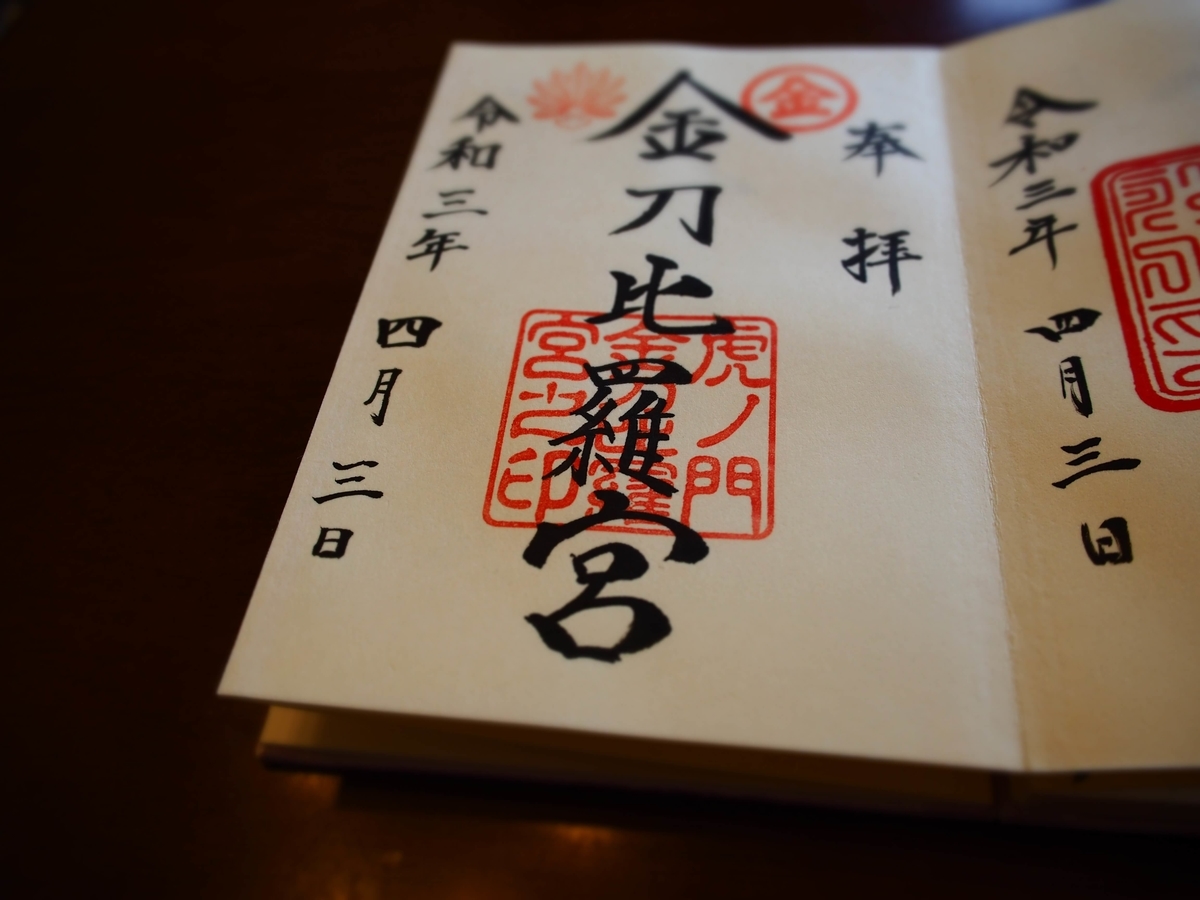 令和三年 四月 三日
奉拝
金
金刀比羅宮
虎ノ門
宮之印
令和三年 四月 三日